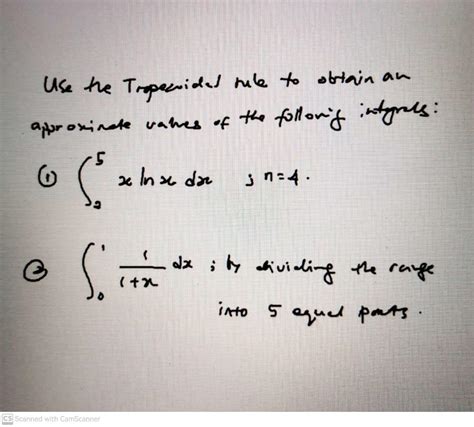 Use the Trapezoidal rule to obtain an
approximate values of the following integrals:
① ∫₂⁵ x ln x dx ; n=4.
② ∫₀¹ 1/(1+x) dx ; by dividing the range
into 5 equal parts.
CS Scanned with CamScanner